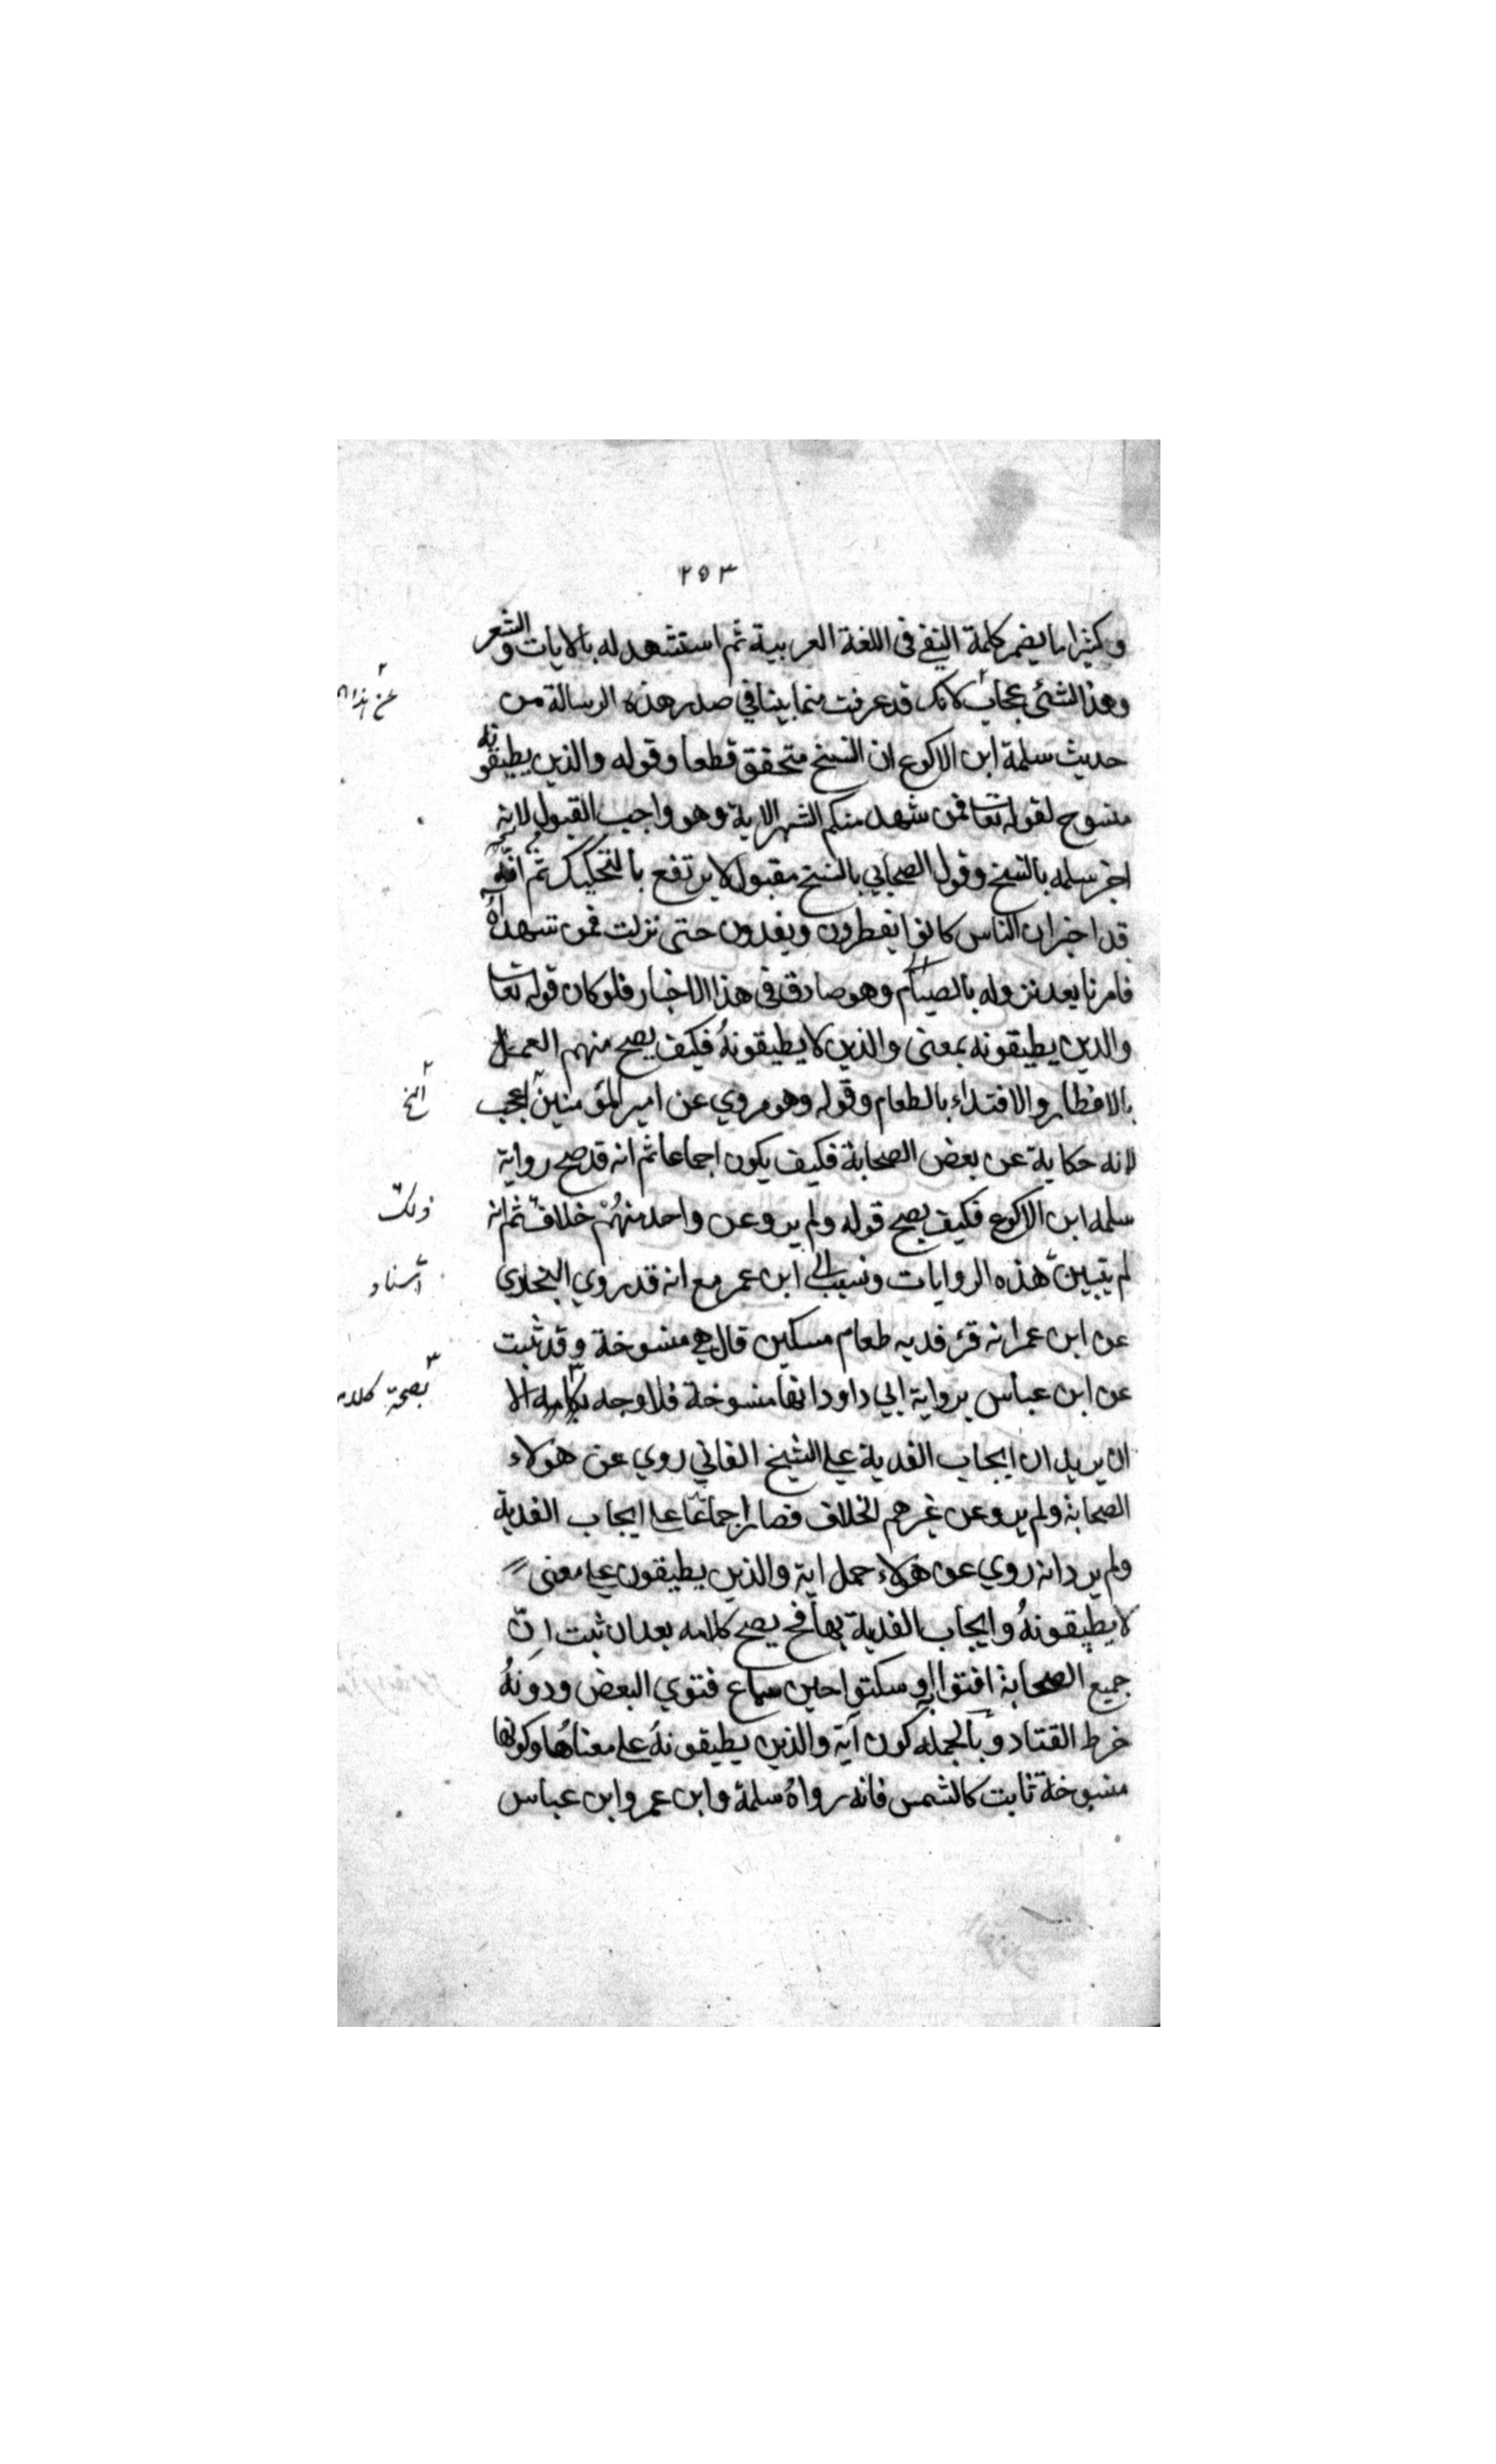 ٢٥٣
وكثيرا ما يضمر كلمة النفي في اللغة العربية ثم استشهد له بالايات والشعر
وهذا لشئ عجاب لانك قد عرفت منما بينا في صدر هذه الرسالة من
حديث سلمة ابن الاكوع ان النسخ متحقق قطعا وقوله والذين يطيقونه
منسوخ لقوله تعا فمن شهد منكم الشهر الاية وهو واجب القبول لانه
اخبر سلمه بالنسخ وقول الصحابي بالنسخ مقبول لا يرتفع بالتحكيك ثم انه
قد اخبر ان الناس كانوا يفطرون ويفدون حتى نزلت فمن شهد اه
فامرنا بعد نزوله بالصيام وهو صادق في هذا الاخبار فلو كان قوله تعا
والذين يطيقونه بمعنى والذين لا يطيقونه فكيف يصح منهم العمل
بالافطار والافتداء بالطعام وقوله وهو مروي عن امير المؤمنين اعجب
لانه حكاية عن بعض الصحابة فكيف يكون اجماعا ثم انه قد صح رواية
سلمه ابن الاكوع فكيف يصح قوله ولم يرو عن واحد منهم خلاف ثم انه
لم يتبين هذه الروايات ونسب الى ابن عمر مع انه قد روي البخاري
عن ابن عمر انه قرء فديه طعام مسكين قال هي منسوخة وقد ثبت
عن ابن عباس برواية ابي داود انها منسوخة فلا وجه لكلامه الا
ان يريد ان ايجاب الفدية على الشيخ الفاني روي عن هولاء
الصحابة ولم يرو عن غيرهم الخلاف فصار اجماعا على ايجاب الفدية
ولم يرد انه روي عن هولاء حمل اية والذين يطيقون على معنى
لا يطيقونه وايجاب الفدية بها فح يصح كلامه بعد ان ثبت ان
جميع الصحابة افتوا به او سكتوا حين سماع فتوي البعض ودونه
خرط القتاد وبالجمله كون آية والذين يطيقونه على معناها وكونها
منسوخة ثابت كالشمس فانه رواه سلمة وابن عمر وابن عباس
٢
٢
الخ
ذلك
اسناد
٣
بصحة كلامه